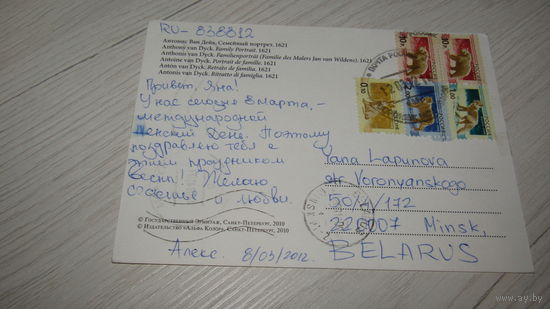 RU-838812
Антонис Ван Дейк. Семейный портрет. 1621
Anthony van Dyck. Family Portrait. 1621
Anthonis van Dyck. Familienporträt (Familie des Malers Jan van Wildens). 1621
Antoine van Dyck. Portrait de famille. 1621
Antón van Dyck. Retrato de familia. 1621
Antonis van Dyck. Ritratto di famiglia. 1621
Привет, Яна!
У нас сегодня 8 марта, -
международной
женский день. Поэтому
поздравляю тебя с
этим праздником
весны! Желаю
счастья и любви.
© Государственный Эрмитаж, Санкт-Петербург, 2010
© Издательство «Альфа Колор», Санкт-Петербург, 2010
Алекс. 8/03/2012.
ПОЧТА РОССИИ
0,10
1,00
Yana Lapunova
str Voronyanskogo
50/4/172
220007 Minsk,
BELARUS
www.ay.by